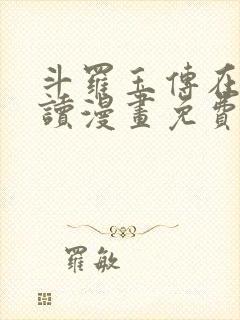 斗羅玉傳在
讀漫畫免費
羅敏